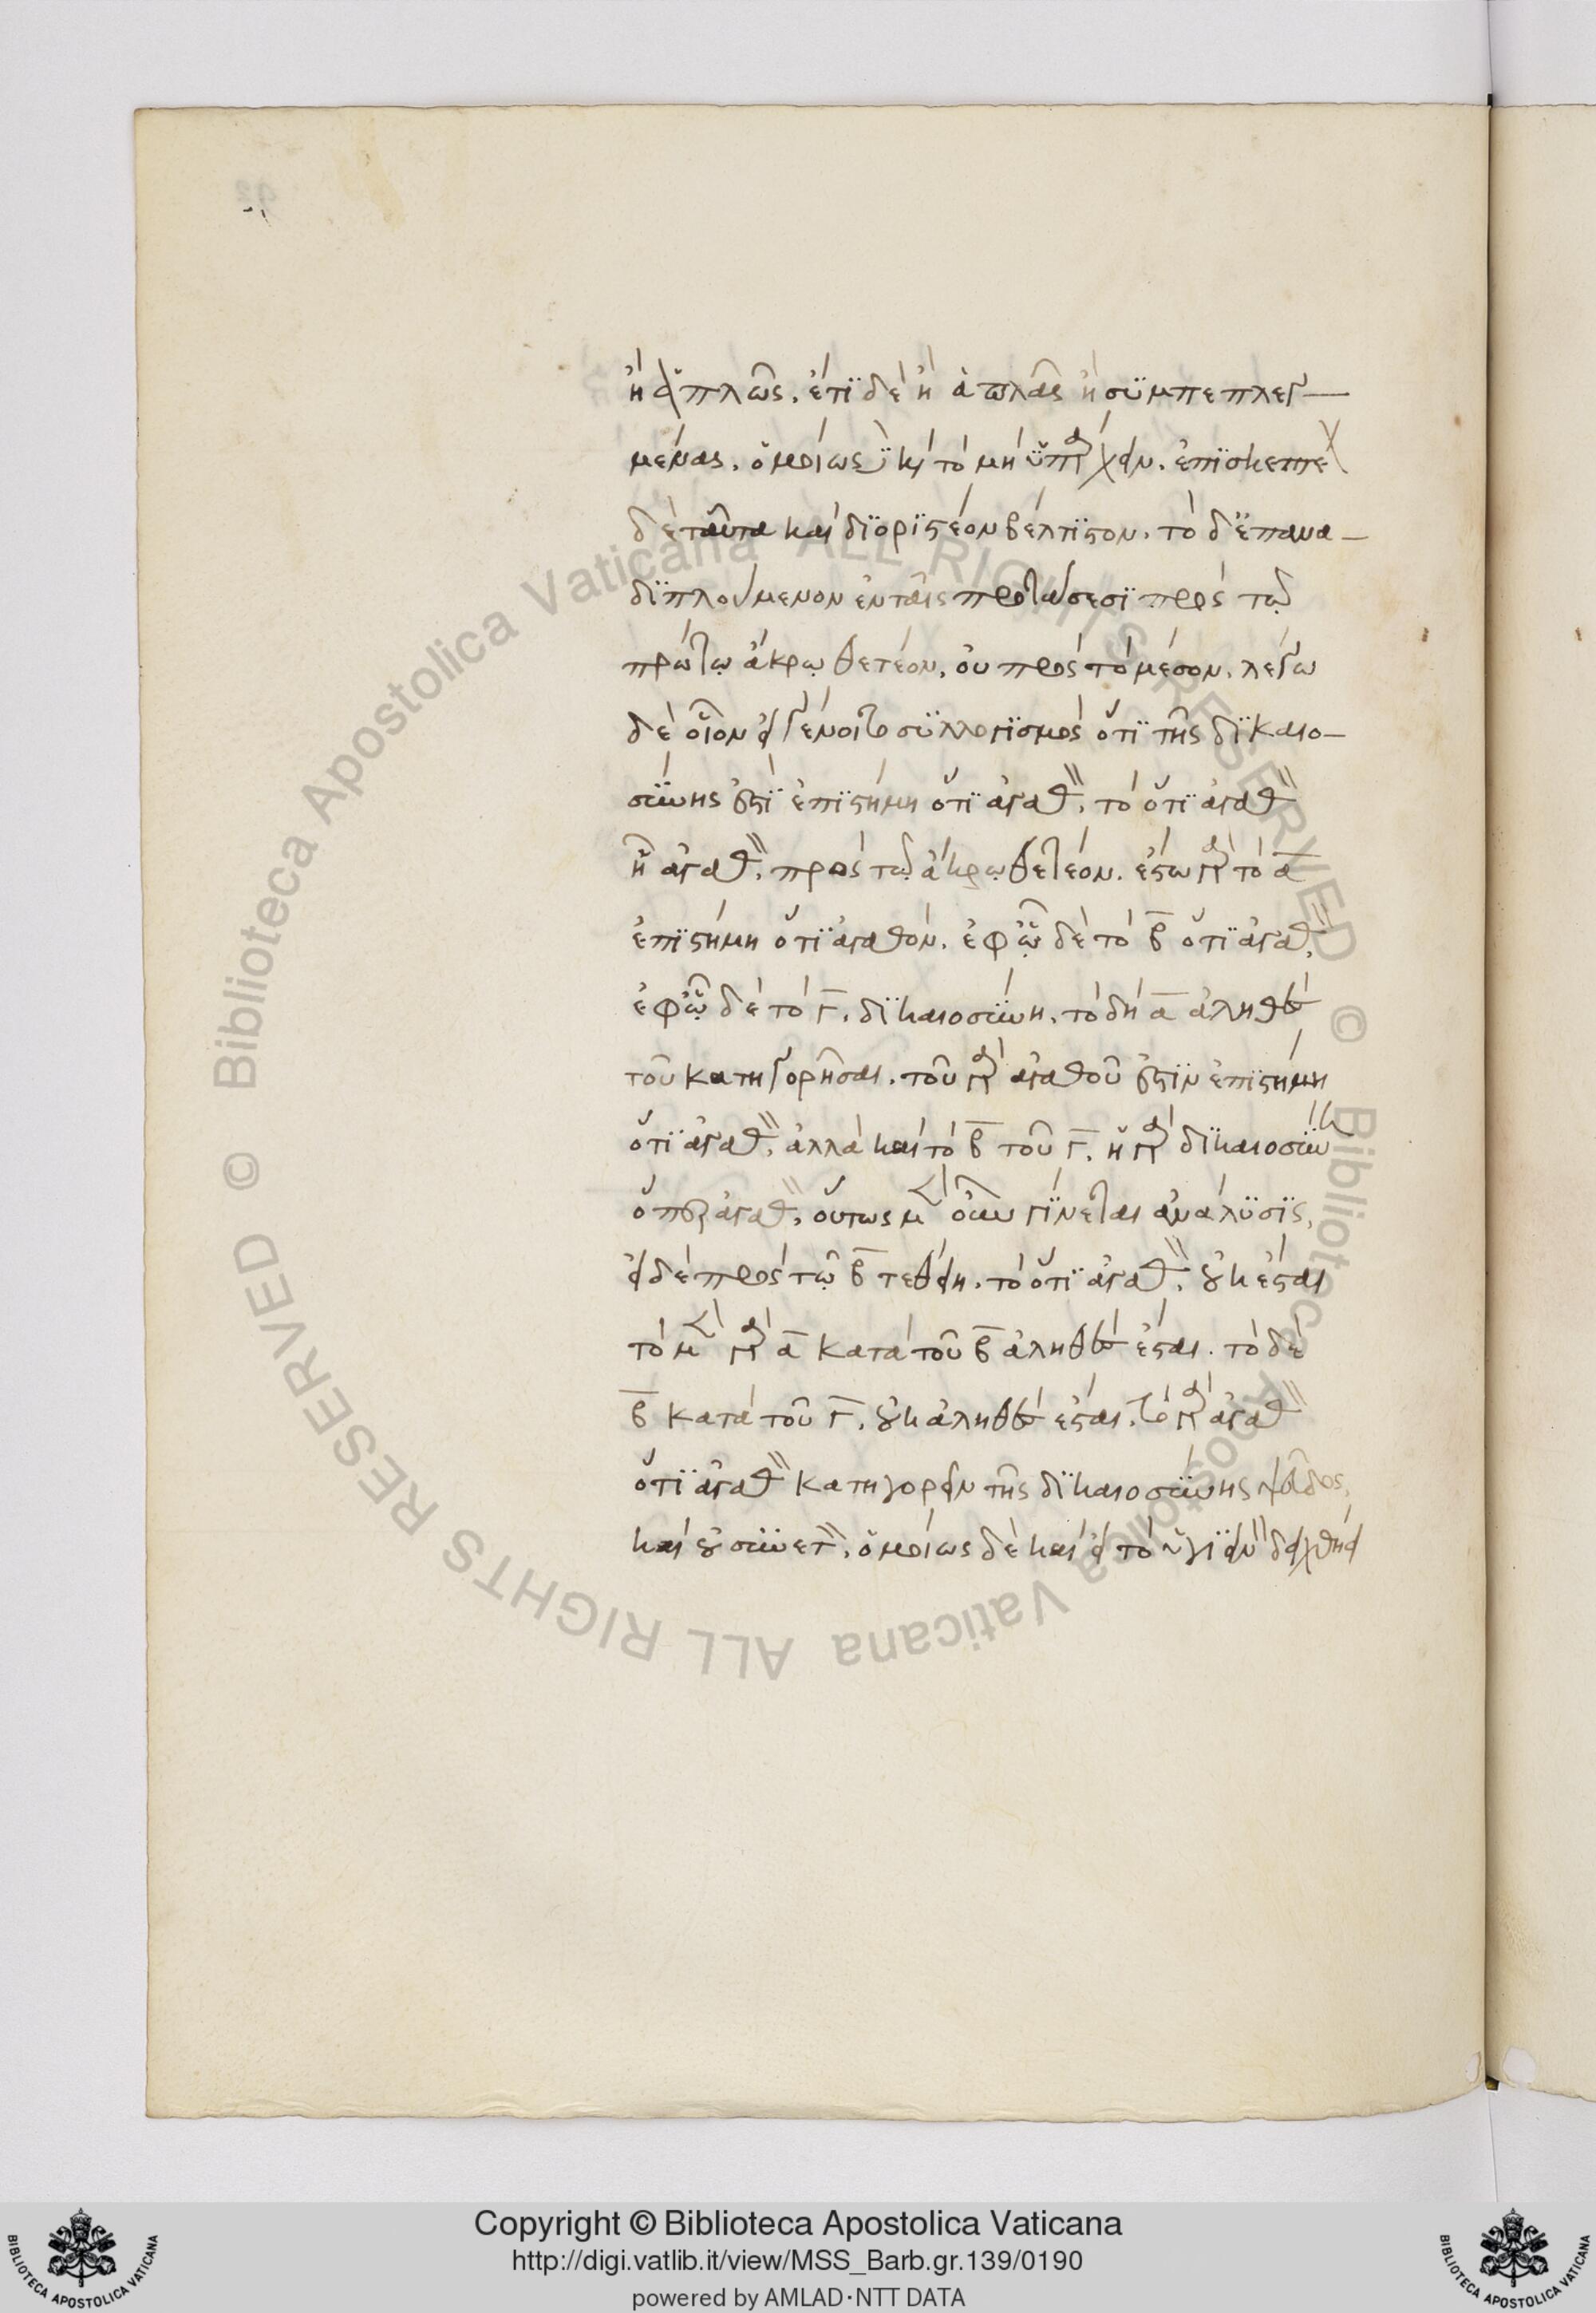 ἢ ἁπλῶς. ἔτι δὲ ἢ ἁπλᾶς ἢ συμπεπλεγ—
μένας. ὁμοίως δὲ κ̀ τὸ μὴ ὑπάρχειν. ἐπισκεπτέ
δὲ ταῦτα καὶ διοριστέον βέλτιον. τὸ δ' ἐπανα—
διπλούμενον ἐν ταῖς προτάσεσι πρὸς τῷ
πρώτῳ ἄκρῳ θετέον, οὐ πρὸς τὸ μέσον. λέγω
δὲ οἷον εἰ γένοιτο συλλογισμὸς ὅτι τῆς δικαιο—
σύνης ἐστὶ ἐπιστήμη ὅτι ἀγαθ̀, τὸ ὅτι ἀγαθ̀
ἢ ἀγαθ̀, πρὸς τῷ ἄκρῳ θετέον. ἔστω γὰρ τὸ α
ἐπιστήμη ὅτι ἀγαθόν. ἐφ' ᾧ δὲ τὸ β ὅτι ἀγαθ̀,
ἐφ' ᾧ δὲ τὸ γ, δικαιοσύνη. τὸ δὴ α ἀληθὲς
τοῦ κατηγορῆσαι. τοῦ γὰρ ἀγαθοῦ ἐστὶν ἐπιστήμη
ὅτι ἀγαθ̀, ἀλλὰ καὶ τὸ β τοῦ γ. ἡ γὰρ δικαιοσύν
ὅπερ ἀγαθ̀, οὕτως μὲν οὖν γίνεται ἀνάλυσις,
εἰ δὲ πρὸς τῷ β τεθείη. τὸ ὅτι ἀγαθ̀, οὐκ ἔσται
τὸ μὲν γὰρ α κατὰ τοῦ β ἀληθὲς ἔσται. τὸ δὲ
β κατὰ τοῦ γ, οὐκ ἀληθὲς ἔσται. τὸ γὰρ ἀγαθ̀
ὅτι ἀγαθ̀ κατηγορεῖν τῆς δικαιοσύνης ψεῦδος,
καὶ οὐ συνετ̀, ὁμοίως δὲ καὶ εἰ τὸ ὑγιεινὸν δειχθείη